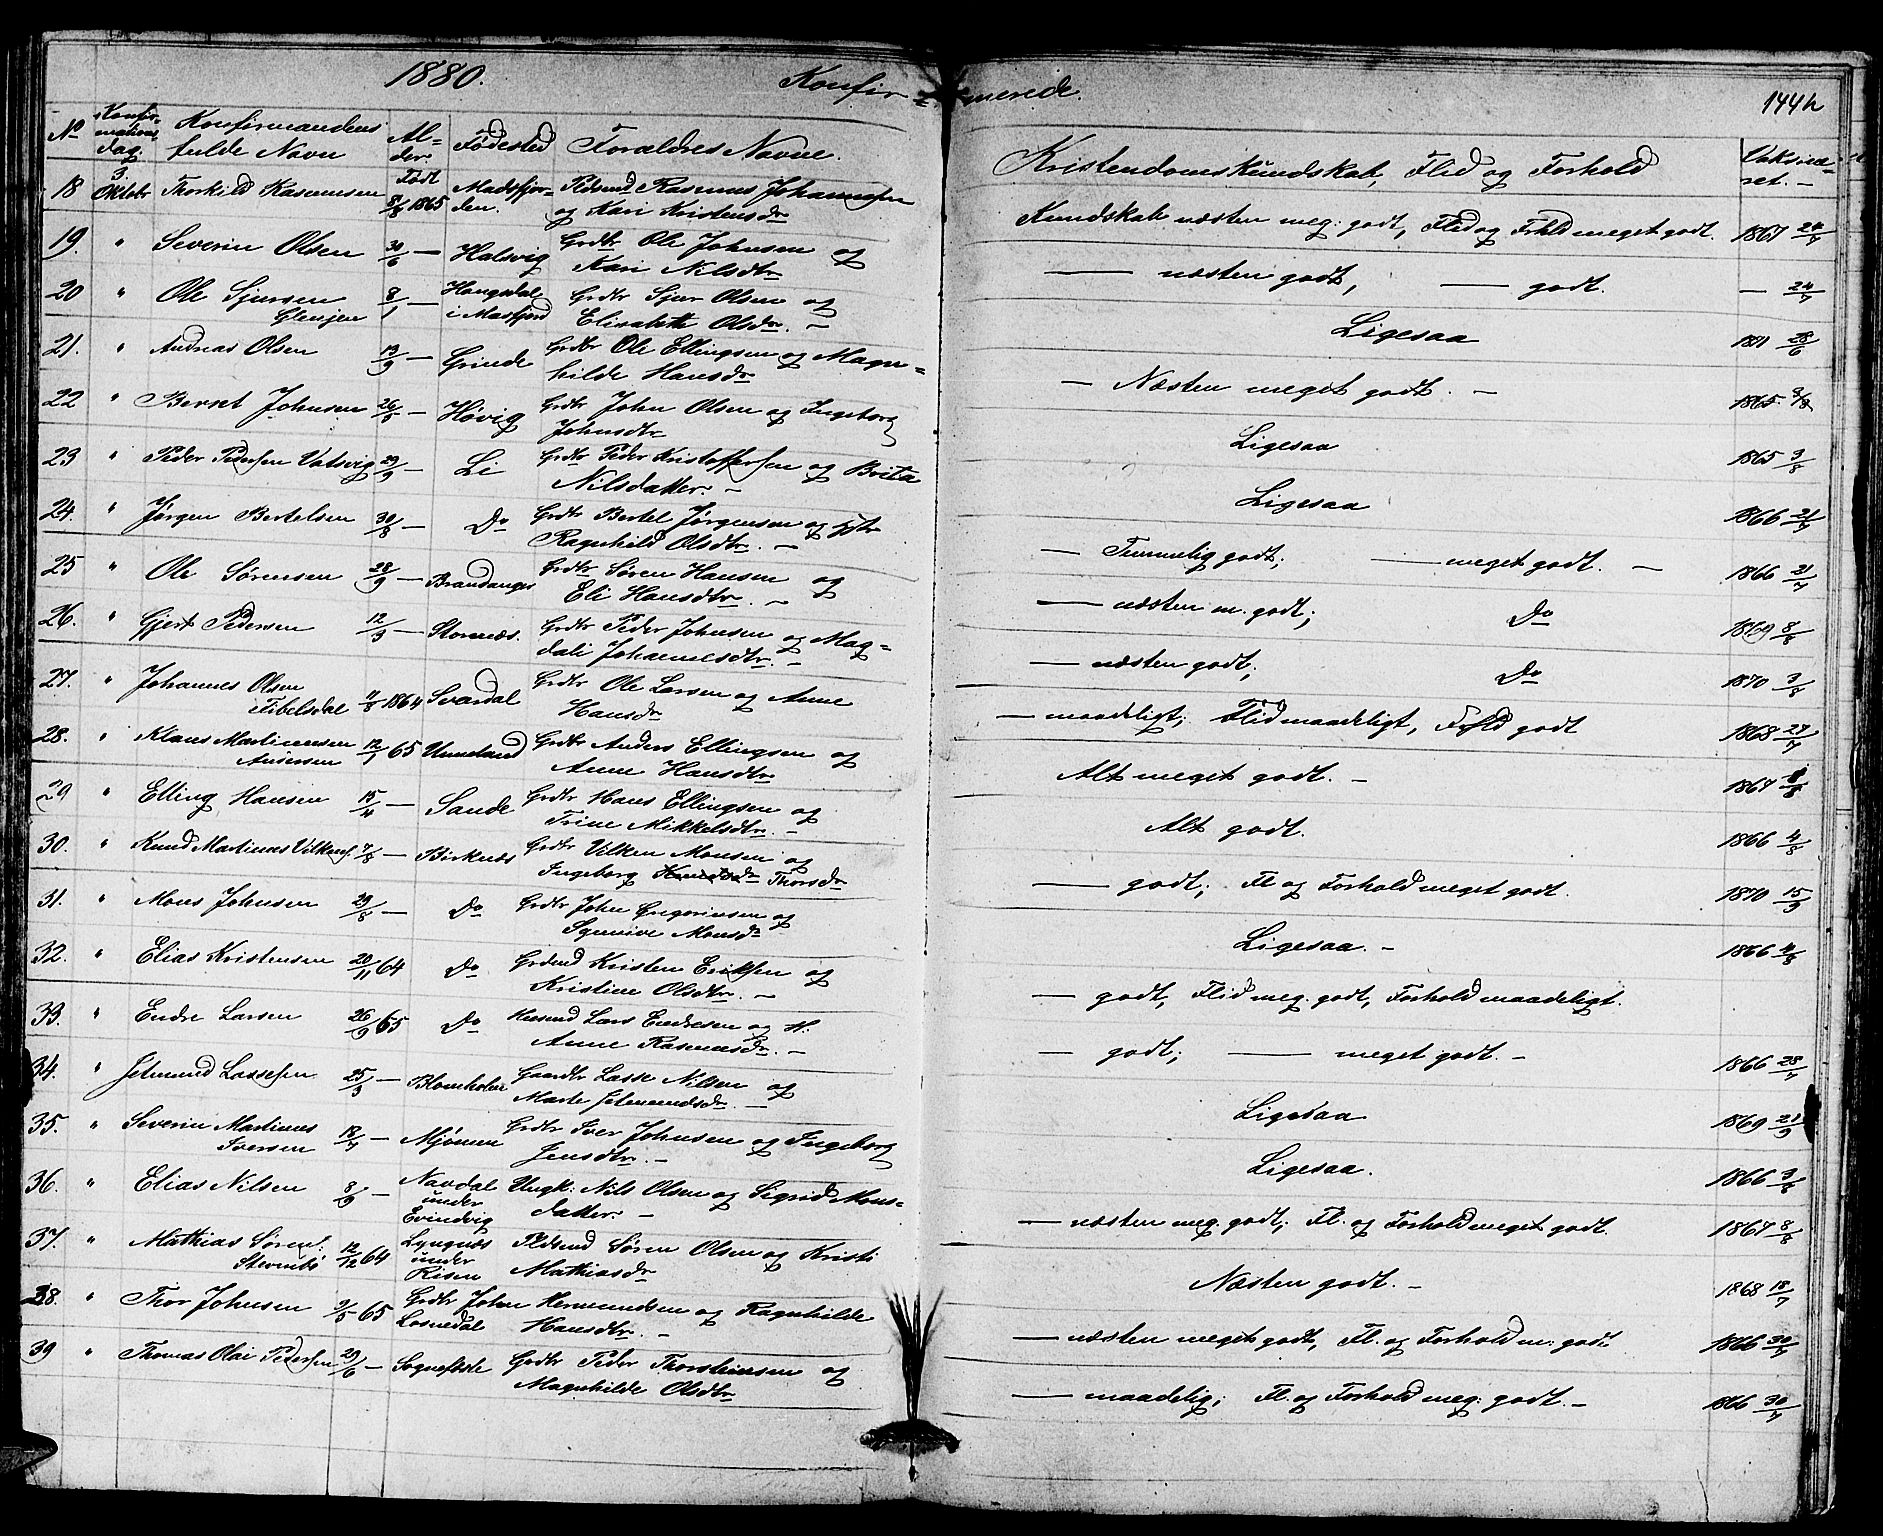 1880. Konfirmerede. 144b
No Konfirmations dag. Konfirmandens fulde Navn Alder Fødested Forældres Navne. Kristendomskundskab, Flid og Forhold Vaksineret. –
18 3 Oktobr Thorkild Rasmussen Født 8/8 1865 Madsfjorden. Pldsmd Rasmus Johannessen
og Kari Kristensdr Kundskab næsten meg: godt, Flid og Frhld meget godt. 1867 24/7
19. " Severin Olsen 30/6 — Halsvig Grdbr Ole Johnsen og
Kari Nilsdtr — næsten godt, — godt. — 24/7
20 " Ole Sjursen 8/1 — Haugsdal Grdbr Sjur Olsen og
i Masfjord Elisabeth Olsdr. – Ligesaa 28/6
21. " Andreas Olsen 13/9 — Grinde Grdbr Ole Ellingsen og Magn=
hilde Hansdr – Næsten meget godt. – 1865.
22 " Berret Johnsen 26/5 — Høvig Grdbr John Olsen og Ingeborg
Johnsdtr Ligesaa 1865 3/8
23 " Peder Pedersen Vatsvig 29/9 — Li Grdbr Peder Kristoffersen og Brita
Nilsdatter. – Ligesaa 1866 21/7
24. " Jørgen Bertelsen 30/8 — Do Grdbr Bertel Jørgensen og Hstr
Ragnhild Olsdtr. – — Temmelig godt; — meget godt. – 1866 21/7
25 " Ole Sørensen 28/9 — Brandanger Grdbr Søren Hansen og
Eli Hansdtr. – — næsten m. godt; Do 1869 8/8
26. " Gjert Pedersen 12/9 — Stornæs. Grdbr Peder Johnsen og Mag=
dali Johannesdtr. – — næsten godt; Do 1870 3/8
27. " Johannes Olsen 11/8 1864 Svardal Grdbr Ole Larsen og Anne
Hansdr — maadeligt; Flid maadeligt, Frhld godt 1868 27/7
28. " Klaus Martinussen 12/1 65 Unneland Grdbr Anders Ellingsen og
Andersen Anne Hansdtr Alt meget godt. –
29 " Elling Hansen 15/4 — Sande Grdbr Hans Ellingsen og
Trine Mikkelsdtr. – Alt godt. 1866 4/8
30. " Knud Martinus Vilkens. 7/8 — Birknæs Grdbr Vilken Monsen og
Ingeborg Thorsdr — godt; Fl og Forhold meget godt. 1870 15/9
31. " Mons Johnsen 29/8 — Do Grdbr John Gregoriusen og
Synnive Monsdr Ligesaa. – 1866 4/8
32. " Elias Kristensen 20/11 64 Do Grdmd Kristen Eriksen og
Kristine Olsdtr. – — godt, Flid meg. godt, Forhold maadeligt.
33. " Endre Larsen 26/9 65 Do Husmd Lars Endresen og H:
Anne Rasmusdr. – — godt; — meget godt. – 1866 28/7
34. " Jetmund Lassesen 25/3 — Blomholm Gaardbr Lasse Nilsen og
Marte Jetmundsdr. – Ligesaa 1869 21/9
35. " Severin Martinus 18/7 — Mjømen Grdbr Iver Johnsen og Ingeborg
Iversen Jensdtr. – Ligesaa. 1866 3/8
36. " Elias Nilsen 8/9 — Navdal Ungk: Nils Olsen og Sigrid Mons=
under
Evindvig datter. – — næsten meg. godt; Fl. og Forhold meget godt. 1867 8/8
37. " Mathias Sørens: 12/12 64 Lyngnæs Pldsmd Søren Olsen og Kristi
under
Risen Mathiasdr Næsten godt. – 1868 18/7
38. " Thor Johnsen 9/5 65 Grdbr John Hermundsen og Ragnhilde
Losnedal Hansdtr. – — næsten meget godt, Fl. og Forhold m: godt 1866 30/7
39 " Thomas Olai Pedersen 29/6 — Sognefeste Grdbr Peder Thorsteinsen og
Magnhilde Olsdtr — maadelig; Fl. og Forhold meg: godt. – 1866 30/7